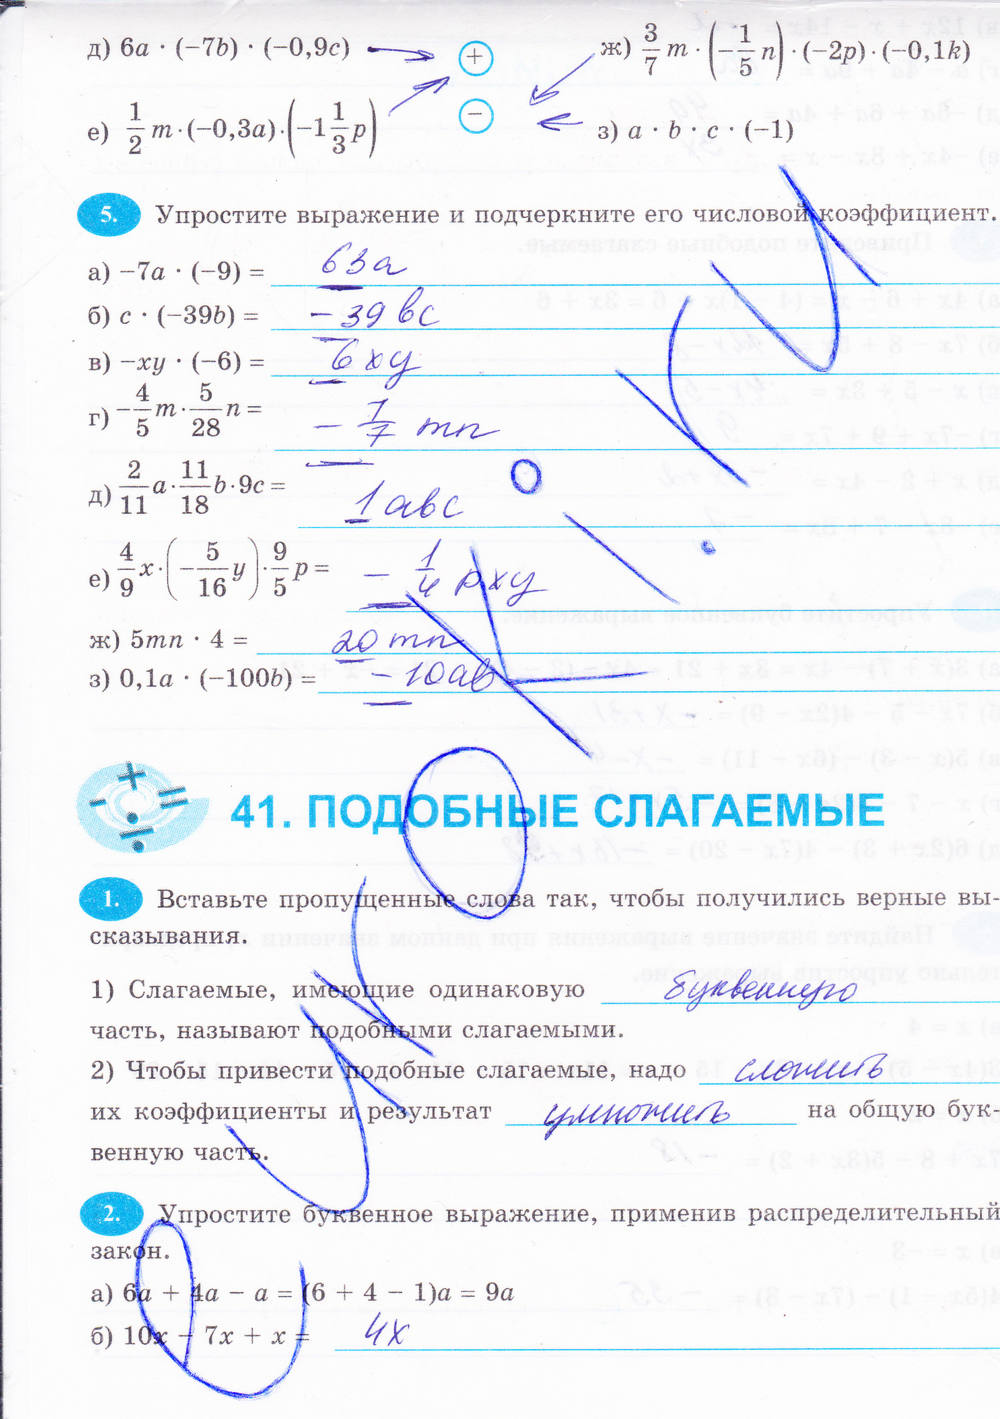 д) 6a · (−7b) · (−0,9c)
+
ж) 3/7 m · (−1/5 n) · (−2p) · (−0,1k)
е) 1/2 m · (−0,3a) · (−1 1/3 p)
−
з) a · b · c · (−1)
5. Упростите выражение и подчеркните его числовой коэффициент.
а) −7a · (−9) = 63a
б) c · (−39b) = −39 bc
в) −xy · (−6) = 6xy
г) −4/5 m · 5/28 n = −1/7 mn
д) 2/11 a · 11/18 b · 9c = 1abc
е) 4/9 x · (−5/16 y) · 9/5 p = −1/4 pxy
ж) 5mn · 4 = 20 mn
з) 0,1a · (−100b) = −10ab
41. ПОДОБНЫЕ СЛАГАЕМЫЕ
1. Вставьте пропущенные слова так, чтобы получились верные вы-
сказывания.
1) Слагаемые, имеющие одинаковую буквенную
часть, называют подобными слагаемыми.
2) Чтобы привести подобные слагаемые, надо сложить
их коэффициенты и результат умножить на общую бук-
венную часть.
2. Упростите буквенное выражение, применив распределительный
закон.
а) 6a + 4a − a = (6 + 4 − 1)a = 9a
б) 10x − 7x + x = 4x